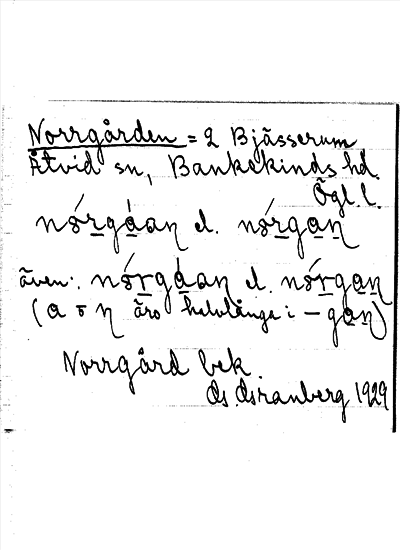 Norrgården = 2 Bjässerum
Åtvid sn, Bankekinds hd.
Ögl. l.
nórgáaŋ el. nórgaŋ
även: nórgáaŋ el. nórgaŋ
(a o ŋ äro halvlånga i –gaŋ)
Norrgård bek.
1929